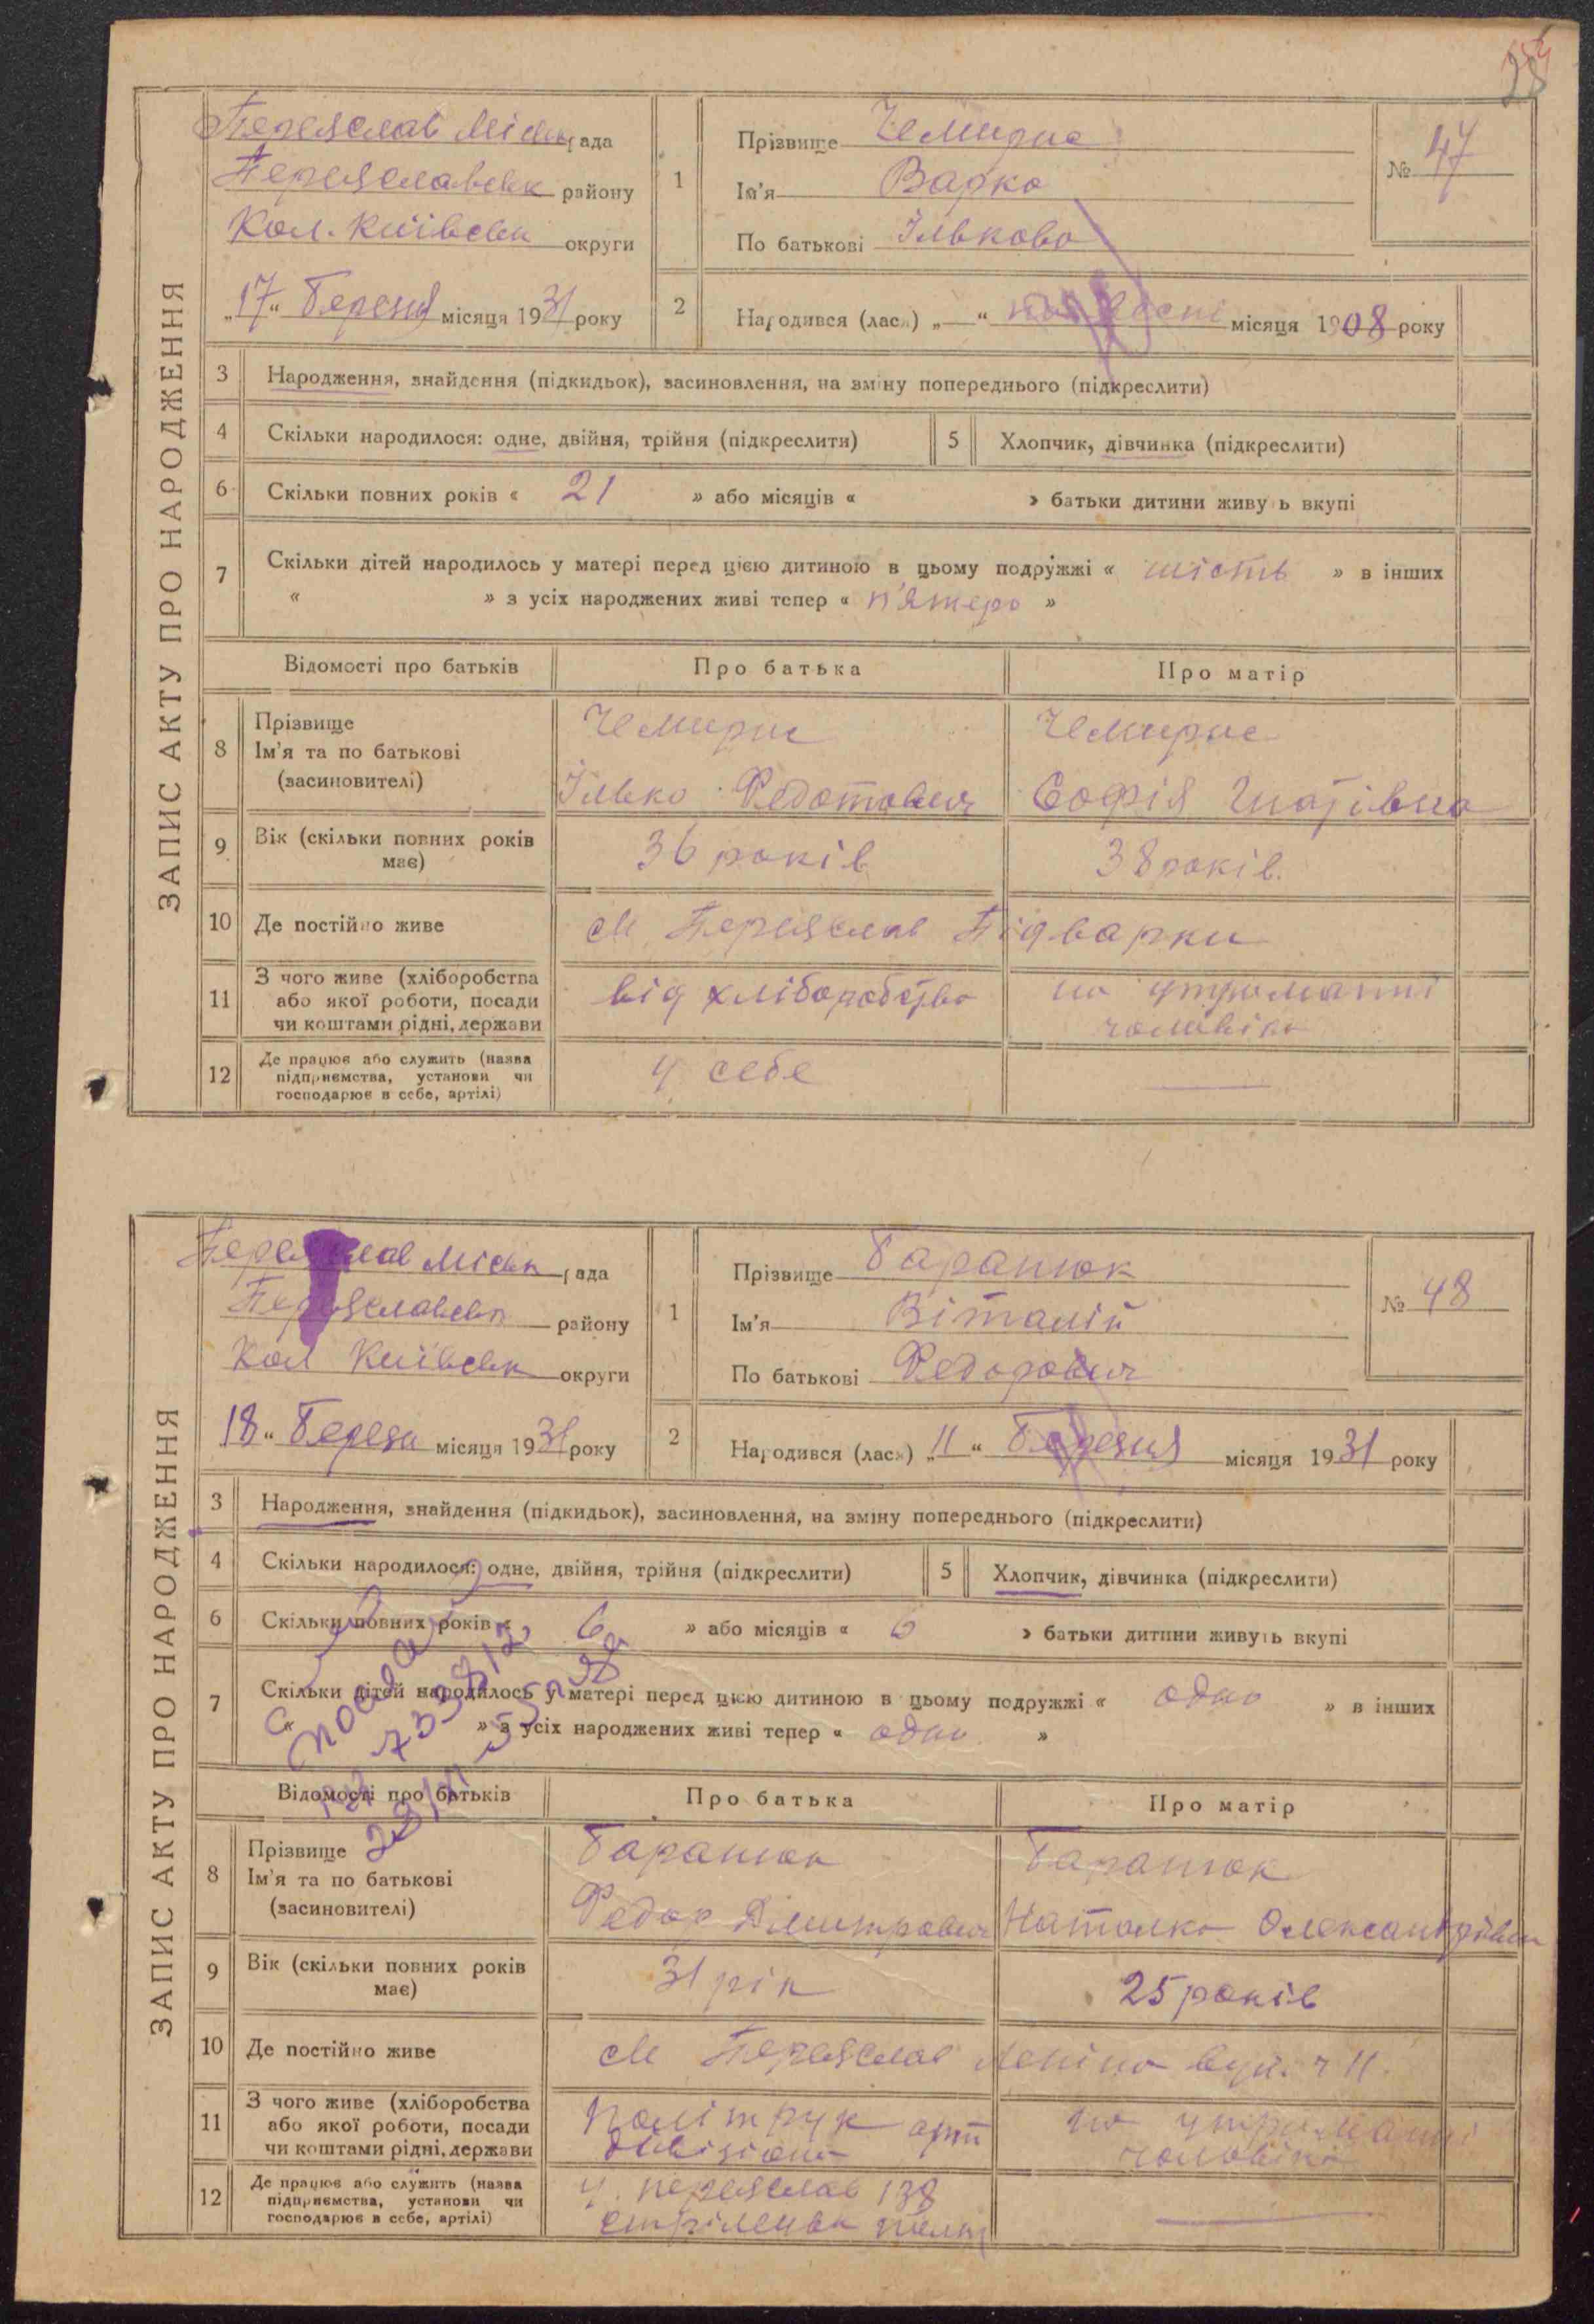 ЗАПИС АКТУ ПРО НАРОДЖЕННЯ
Переяслав Міськ рада
Переяславськ району
Кол. Київськ округи
„17“ Березня місяця 1931 року
1
Прізвище Чемирис
Ім'я Варка
По батькові Ількова
№ 47
2
Народився (лась) „—“ місяця 1908 року
3 Народження, знайдення (підкидьок), засиновлення, на зміну попереднього (підкреслити)
4 Скільки народилося: одне, двійня, трійня (підкреслити)
5 Хлопчик, дівчинка (підкреслити)
6 Скільки повних років « 21 » або місяців « » батьки дитини живуть вкупі
7 Скільки дітей народилось у матері перед цією дитиною в цьому подружжі « шість » в інших
« » з усіх народжених живі тепер « п'ятеро »
Відомості про батьків Про батька Про матір
8 Прізвище
Ім'я та по батькові
(засиновителі)
Чемирис
Ілько Федотович
Чемирис
Софія Гнатівна
9 Вік (скільки повних років має)
36 років
38 років.
10 Де постійно живе
м Переяслав Підварки
11 З чого живе (хліборобства
або якої роботи, посади
чи коштами рідні, держави
від хліборобства
на утриманні
чоловіка
12 Де працює або служить (назва
підприємства, установи чи
господарює в себе, артілі)
у себе
ЗАПИС АКТУ ПРО НАРОДЖЕННЯ
Переяслав Міськ рада
Переяславськ району
Кол Київськ округи
18“ Березн місяця 1931 року
1
Прізвище Баранюк
Ім'я Віталій
По батькові Федорович
№ 48
2
Народився (лась) „11“ Березня місяця 1931 року
3 Народження, знайдення (підкидьок), засиновлення, на зміну попереднього (підкреслити)
4 Скільки народилося: одне, двійня, трійня (підкреслити)
5 Хлопчик, дівчинка (підкреслити)
6 Скільки повних років « 6 » або місяців « 6 » батьки дитини живуть вкупі
7 Скільки дітей народилось у матері перед цією дитиною в цьому подружжі « одно » в інших
« » з усіх народжених живі тепер « одно »
Відомості про батьків Про батька Про матір
8 Прізвище
Ім'я та по батькові
(засиновителі)
Баранюк
Федор Дмитрович
Баранюк
Наталка Олександрівн
9 Вік (скільки повних років має)
31 рік
25 років
10 Де постійно живе
м Переяслав Леніна вул. ч 11.
11 З чого живе (хліборобства
або якої роботи, посади
чи коштами рідні, держави
Політрук арт
дивізіона
на утриманні
чоловіка
12 Де працює або служить (назва
підприємства, установи чи
господарює в себе, артілі)
у. переяслав 138
стрілецьк полку